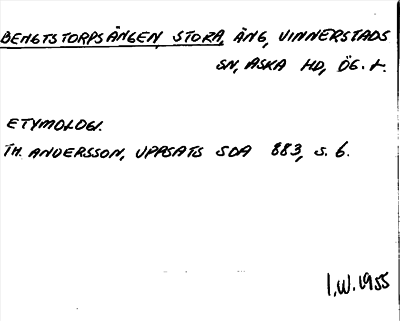 BENGTSTORPSÄNGEN, STORA, ÄNG, VINNERSTADS
SN, ASKA HD, ÖG. L.
ETYMOLOGI.
TH. ANDERSSON, UPPSATS SOA 883, S. 6.
I.W. 1955